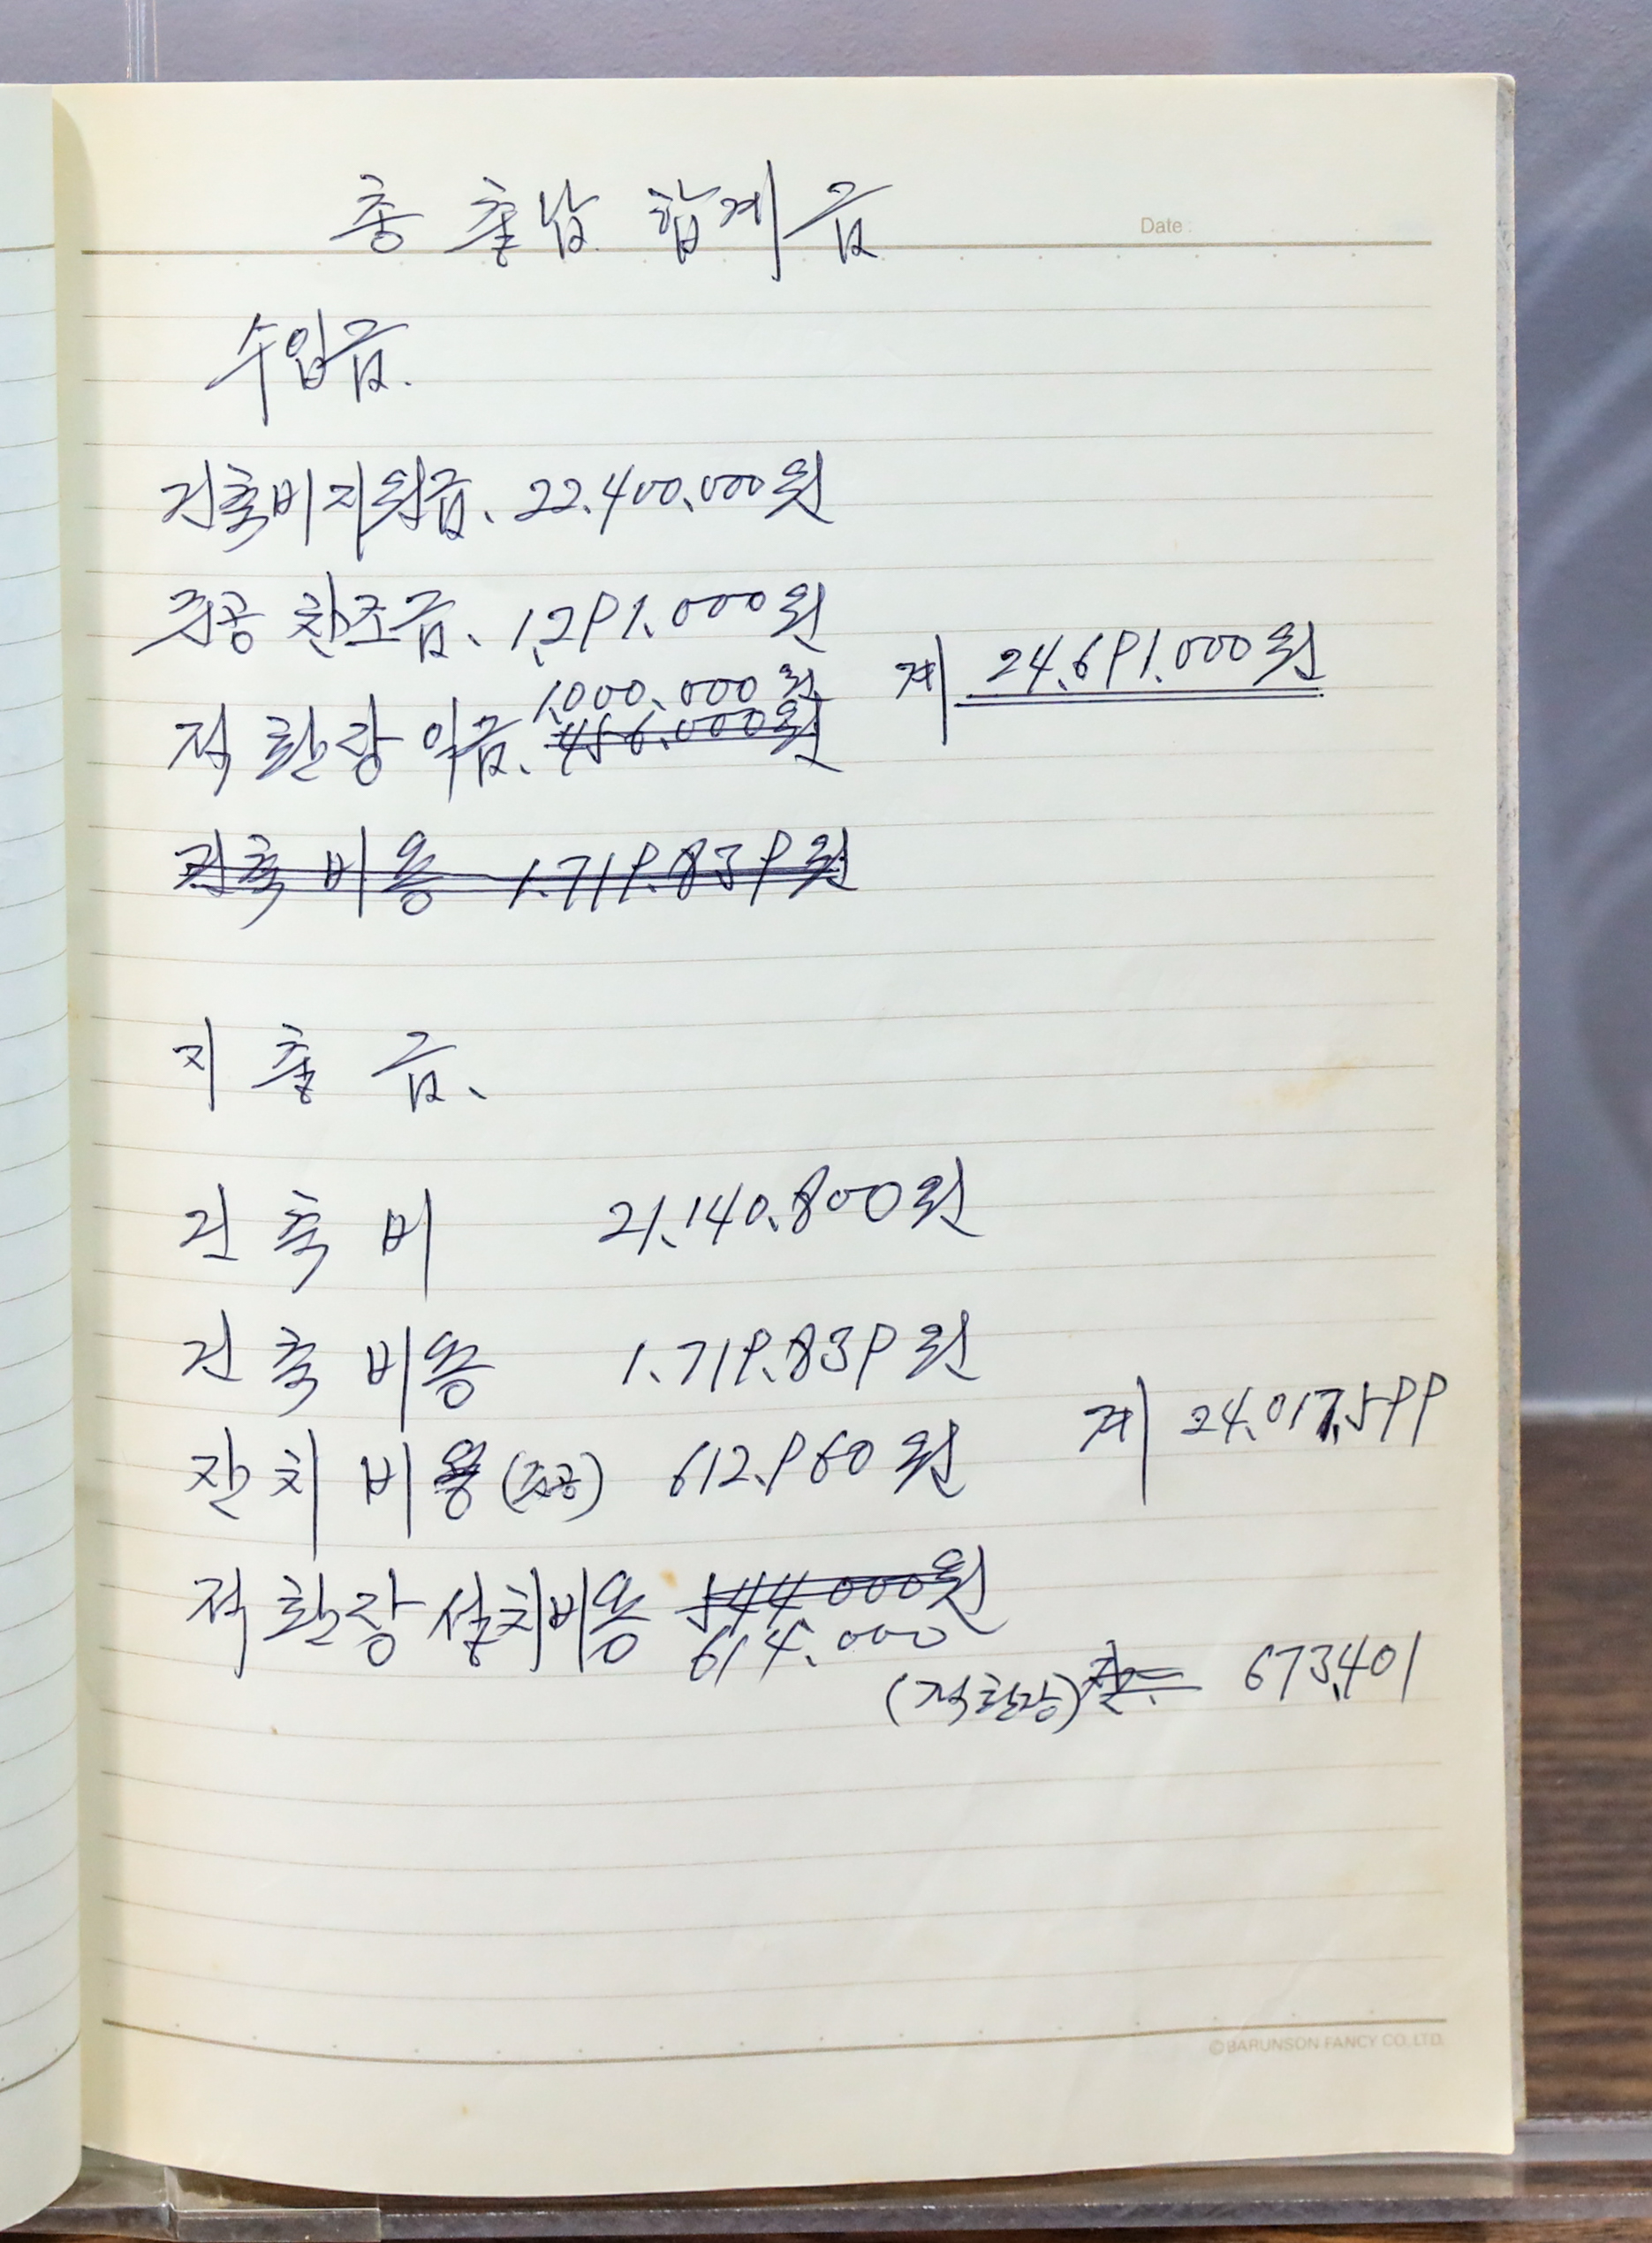 총 출납 합계금
Date :
수입금.
건축비지원금. 22.400.000원
준공 찬조금. 1.291.000원
계 24.691.000원
1.000.000원
적환장 이금. 456.000원
건축 비용 1.719.839원
지출금.
건축비 21.140.800원
건축비용 1.719.839원
계 24.017.599
잔치비용 (준공) 612.960원
적환장 설치비용 544.000원
614.000
(적환장) 잔 673.401
©BARUNSON FANCY CO.,LTD.